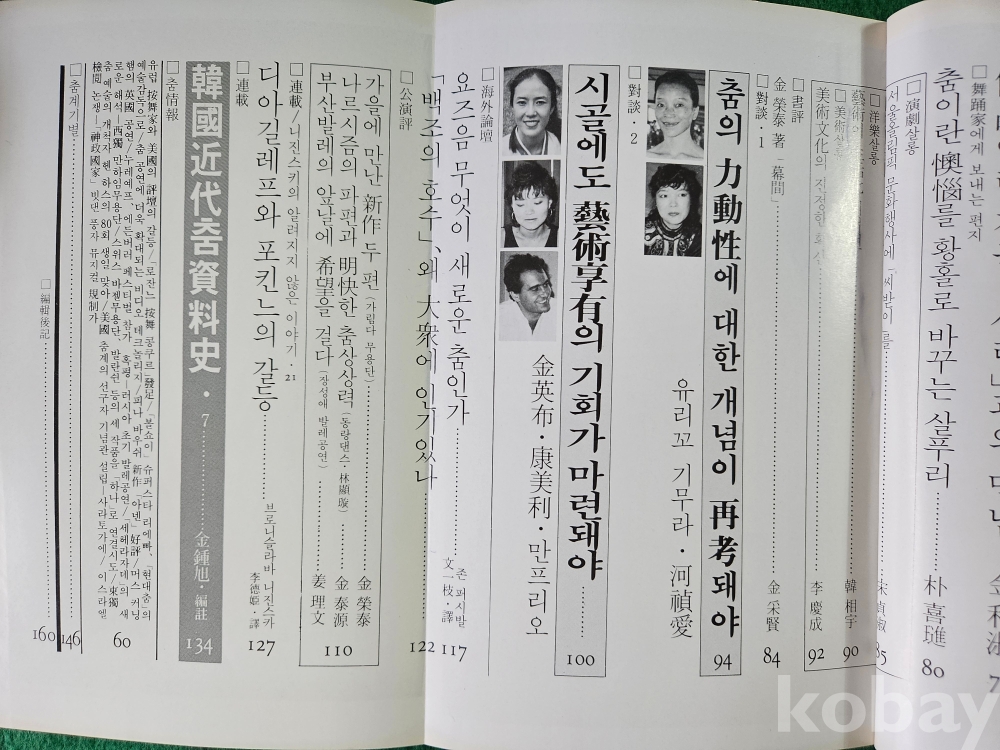 □舞踊家에게 보내는 편지
춤이란 懊惱를 황홀로 바꾸는 살푸리 …… 朴喜璡 80
□演劇살롱
서울올림픽 문화행사에 「씨받이」를 …… 85
□洋樂살롱
韓相宇 90
□美術살롱
美術文化의 …… 李慶成 92
□書評
金榮泰 著 「幕間」 …… 金采賢 84
□對談·1
춤의 力動性에 대한 개념이 再考돼야 94
유리꼬 기무라·河禎愛
□對談·2
시골에도 藝術享有의 기회가 마련돼야 …… 100
金英布·康美利·만프리오
□海外論壇
요즈음 무엇이 새로운 춤인가 …… 존 퍼시발 117
文一枝·譯
「백조의 호수」, 왜 大衆에 인기있나 …… 122
□公演評
가을에 만난 新作 두 편 (가림다 무용단) …… 金榮泰
나르시즘의 파편과 明快한 춤상상력 (동랑댄스·林顯璇) …… 金泰源 110
부산발레의 앞날에 希望을 걸다 (장성애 발레공연) …… 姜理文
□連載/니진스키의 알려지지 않은 이야기·21
디아길레프와 포킨느의 갈등 …… 브로니슬라바 니진스카 127
李德姬·譯
□連載
韓國近代춤資料史·7 …… 金鍾旭·編註 134
□춤情報
유럽 按舞家와 美國의 評壇의 갈등/「로잔」 按舞 콩쿠르 發足/「볼쇼이」 슈퍼스타 리에빠, 「현대춤」의
예술감독으로/춤 공연에 더욱 확대되는 비디오 테크놀리지/피나 바우쉬 新作 「아넨」 好評/머스 커닝
햄의 英國 공연/누레예프, 에든버러 페스티벌 참가, 혹평-러시아 초기 발레공연/「세헤라자데」의 새
로운 해석-西獨 만하임무용단/스위스 바젤무용단, 발란쉰 등의 세 작품을 「하나」로 연결시도/東獨
춤 예술의 개척자 헨 하스의 80회 생일 맞아/美國 춤계의 선구자 기념관 설립-사라토가에/이스라엘
檢閱 논쟁-「神政國家」 빗댄 풍자 뮤지컬 規制가
60
□춤계기별 …… 146
□編輯後記 …… 160
kobay